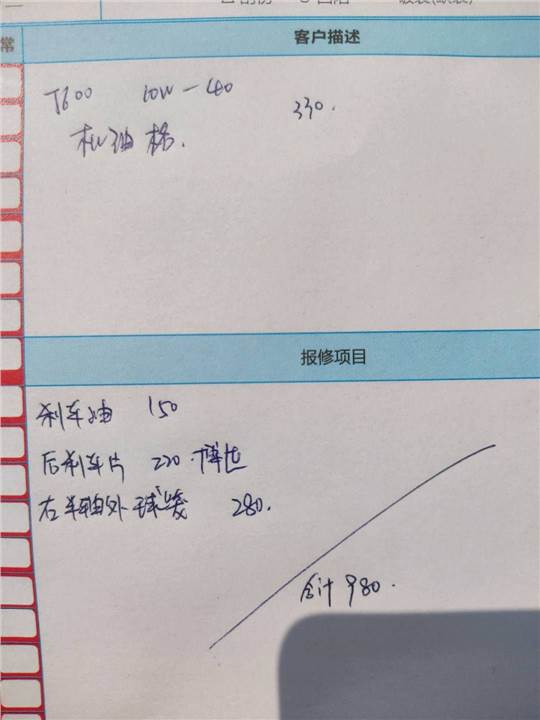 常
客户描述
T600 10W-40 330.
机油格.
报修项目
刹车油 150
后刹车片 220.博世
右半轴外球笼 280.
合计 980.